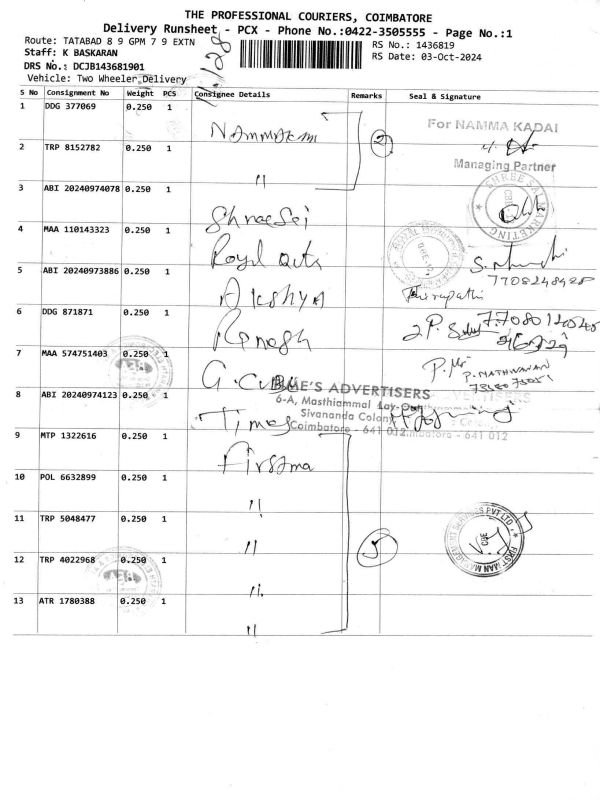 THE PROFESSIONAL COURIERS, COIMBATORE
Delivery Runsheet - PCX - Phone No.:0422-3505555 - Page No.:1
Route: TATABAD 8 9 GPM 7 9 EXTN
RS No.: 1436819
Staff: K BASKARAN
RS Date: 03-Oct-2024
DRS No.: DCJB143681901
Vehicle: Two Wheeler Delivery
S No Consignment No Weight PCS Consignee Details Remarks Seal & Signature
1 DDG 377069 0.250 1
For NAMMA KADAI
2
2 TRP 8152782 0.250 1 "
Managing Partner
3 ABI 20240974078 0.250 1 Shree Sai
SHREE SAI MARKETING
4 MAA 110143323 0.250 1 Royal
5 ABI 20240973886 0.250 1 Akshya
7708248928
6 DDG 871871 0.250 1
7 MAA 574751403 0.250 1 G. Cube
P. MATHIVANAN
8 ABI 20240974123 0.250 1 Times
ADVERTISERS
6-A, Masthiammal Lay-Out
Sivananda Colony
Coimbatore - 641 012
9 MTP 1322616 0.250 1 Firstma
10 POL 6632899 0.250 1 "
11 TRP 5048477 0.250 1 "
5
FIRST MAN MANAGEMENT SERVICES PVT LTD
CBE
12 TRP 4022968 0.250 1 "
13 ATR 1780388 0.250 1 "